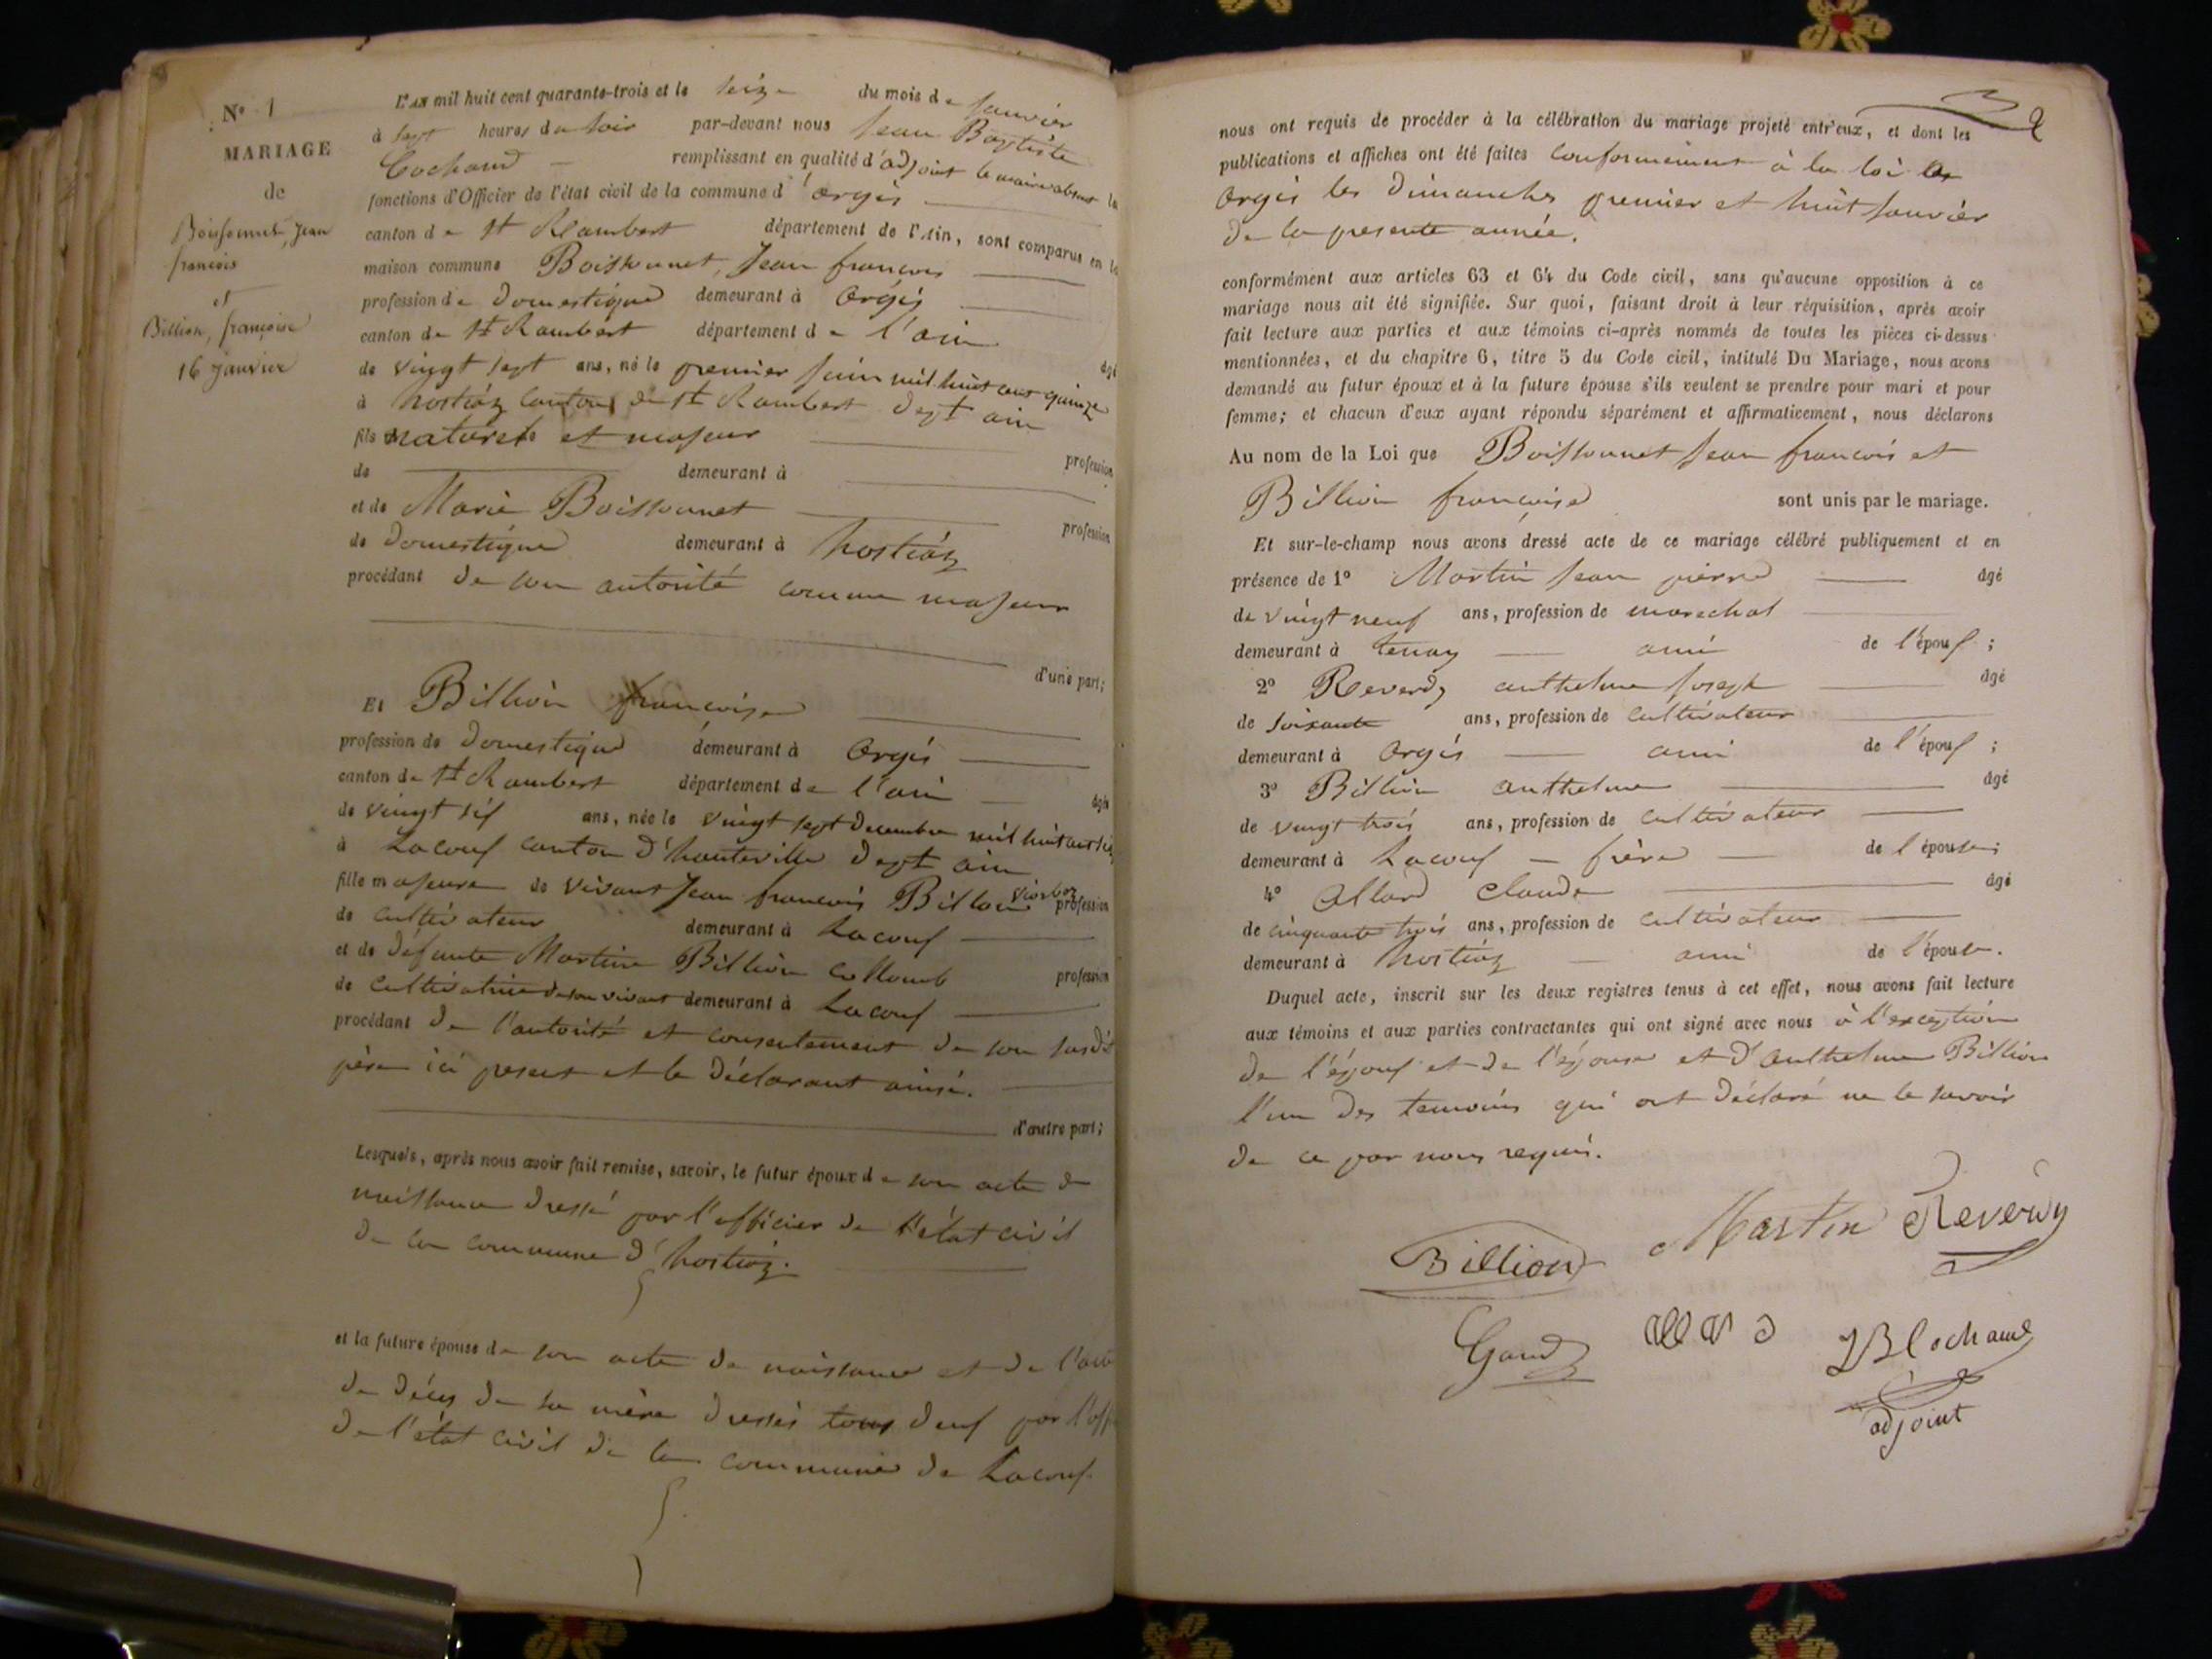 N° 1
MARIAGE
de
Boissonnet, Jean
françois
et
Billion, françoise
16 janvier
L'AN mil huit cent quarante-trois et le seize du mois de janvier
à sept heures du soir par-devant nous Jean Baptiste
Cochaud remplissant en qualité d'adjoint le maire absent les
fonctions d'Officier de l'état civil de la commune d'argis
canton de St Rambert département de l'Ain, sont comparus en la
maison commune Boissonnet, Jean francois
profession de domestique demeurant à Argis
canton de St Rambert département de l'ain âgé
de vingt sept ans, né le premier juin mil huit cent quinze
à hostiaz canton de St Rambert dept ain
fils naturel et majeur profession
de demeurant à
et de Marie Boissonnet profession
de domestique demeurant à hostiaz
procédant de son autorité comme majeur
d'une part;
Et Billion françoise
profession de domestique demeurant à Argis
canton de St Rambert département de l'ain âgée
de vingt six ans, née le vingt sept decembre mil huit cent
à Lacoux canton d'hauteville dept ain
fille majeure de vivant Jean francois Billion profession
de cultivateur demeurant à Lacoux
et de défunte Martine Billion Collomb profession
de cultivatrice de son vivant demeurant à Lacoux
procédant de l'autorité et consentement de son susdit
père ici présent et le déclarant ainsi.
d'autre part;
Lesquels, après nous avoir fait remise, savoir, le futur époux de son acte de
naissance dressé par l'officier de l'état civil
de la commune d'hostiaz.
et la future épouse de son acte de naissance et de l'acte
de décès de sa mère dressés tous deux par l'off
de l'état civil de la commune de Lacoux.
2
nous ont requis de procéder à la célébration du mariage projeté entr'eux, et dont les
publications et affiches ont été faites conformément à la loi
Argis les dimanches premier et huit janvier
de la presente année.
conformément aux articles 63 et 64 du Code civil, sans qu'aucune opposition à ce
mariage nous ait été signifiée. Sur quoi, faisant droit à leur réquisition, après avoir
fait lecture aux parties et aux témoins ci-après nommés de toutes les pièces ci-dessus
mentionnées, et du chapitre 6, titre 5 du Code civil, intitulé Du Mariage, nous avons
demandé au futur époux et à la future épouse s'ils veulent se prendre pour mari et pour
femme; et chacun d'eux ayant répondu séparément et affirmativement, nous déclarons
Au nom de la Loi que Boissonnet Jean francois et
Billion françoise sont unis par le mariage.
Et sur-le-champ nous avons dressé acte de ce mariage célébré publiquement et en
présence de 1° Martin Jean pierre âgé
de vingt neuf ans, profession de marechal
demeurant à tenay ami de l'époux;
2° Reverdy anthelme Joseph âgé
de soixante ans, profession de cultivateur
demeurant à Argis ami de l'époux;
3° Billion anthelme âgé
de vingt trois ans, profession de cultivateur
demeurant à Lacoux – frère de l'épouse;
4° Allard Claude âgé
de cinquante trois ans, profession de cultivateur
demeurant à hostiaz – ami de l'épouse.
Duquel acte, inscrit sur les deux registres tenus à cet effet, nous avons fait lecture
aux témoins et aux parties contractantes qui ont signé avec nous à l'exception
de l'époux et de l'épouse et d'anthelme Billion
l'un des temoins qui ont déclaré ne le savoir
de ce par nous requis.
Billion Martin Reverdy
JB Cochaud
adjoint